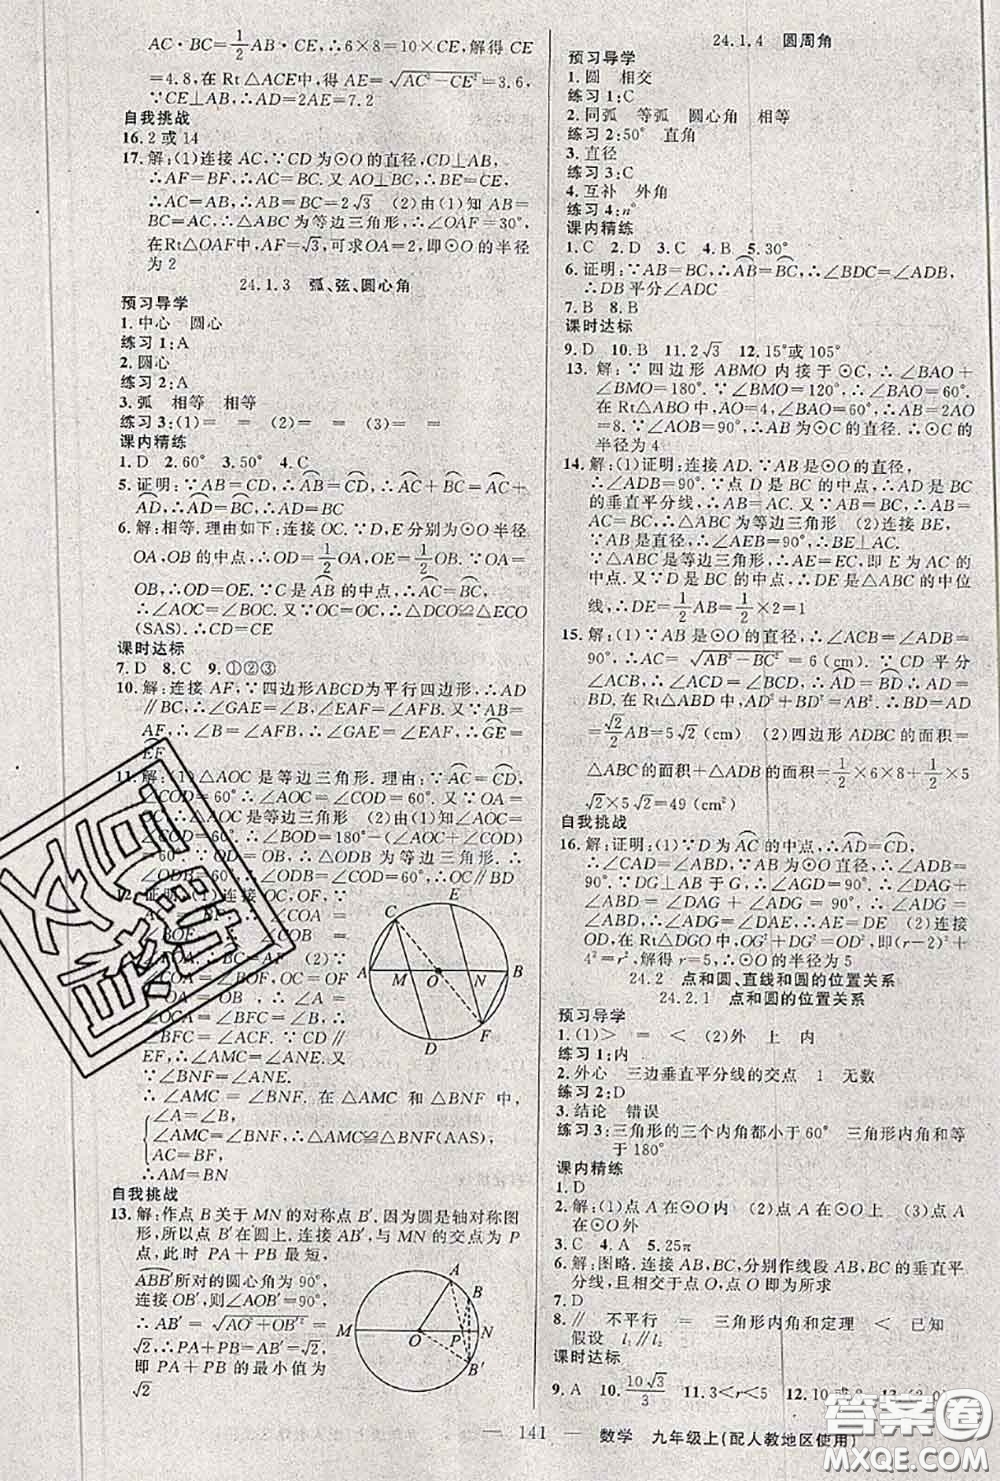 AC·BC=1/2AB·CE,∴6×8=10×CE,解得CE
=4.8,在Rt△ACE中,得AE=√(AC²-CE²)=3.6,
∵CE⊥AB,∴AD=2AE=7.2
自我挑战
16.2或14
17.解:(1)连接AC,∵CD为⊙O的直径,CD⊥AB,
∴AF=BF,∴AC=BC.又AO⊥BC,∴BE=CE,
∴AC=AB,∴AC=AB=BC (2)由(1)知AB=
BC=AC,∴△ABC为等边三角形,∴∠OAF=30°,
在Rt△OAF中,AF=√3,可求OA=2,即⊙O的半径
为2
24.1.3 弧、弦、圆心角
预习导学
1.中心 圆心
练习1:A
2.圆心
练习2:A
3.弧 相等 相等
练习3:(1)= = (2)= = (3)= =
课内精练
1.D 2.60° 3.50° 4.C
5.证明:∵AB=CD,∴AB=CD,∴AB-BD=CD-
BD,∴AD=BC,∴AD=BC
6.解:相等.理由如下:连接OC.∵D,E分别为⊙O半径
OA,OB的中点,∴OD=1/2OA,OE=1/2OB.∵OA
=OB,∴OD=OE.∵C是AB的中点,∴AC=BC,
∴∠AOC=∠BOC.又∵OC=OC,∴△DCO≌△ECO
(SAS).∴CD=CE
课时达标
7.D 8.C 9.①②③
10.解:连接AF,∵四边形ABCD为平行四边形,∴AD
∥BC,∴∠GAE=∠B,∠EAF=∠AFB.又∵AB=
AF,∴∠B=∠AFB,∴∠GAE=∠EAF,∴GE=
EF
11.解:(1)△AOC是等边三角形.理由:∵AC=CD,
∠COD=60°,∴∠AOC=∠COD=60°.又∵OA=
OC,∴△AOC是等边三角形 (2)由(1)知∠AOC=
∠COD=60°,∴∠BOD=180°-(∠AOC+∠COD)
=60°.∵OD=OB,∴△ODB为等边三角形.∴∠ODB
=60°,∴∠ODB=∠COD=60°,∴OC∥BD
12.证明:(1)连接OC,OF,∵
∠BOF.∴AC=BF (2)∵
∠BFC,∵CD∥
EF,∴∠AMC=∠ANE.又∵
∠BNF=∠ANE.
∴∠AMC=∠BNF.在△AMC和△BNF中,
∠A=∠B,
∠AMC=∠BNF,∴△AMC≌△BNF(AAS),
AC=BF,
∴AM=BN
C E A M O N B D F
自我挑战
13.解:作点B关于MN的对称点B′,因为圆是轴对称图
形,所以点B′在圆上.连接AB′,与MN的交点为P
点,此时PA+PB最短,
ABB′所对的圆心角为90°,
连接OB′,则∠AOB′=90°,
∴AB′=√(AO²+OB′²)=√2,
即PA+PB的最小值为
√2
A B M O P N B′
24.1.4 圆周角
预习导学
1.圆 相交
练习1:C
2.同弧 等弧 圆心角 相等
练习2:50° 直角
3.直径
练习3:C
4.互补 外角
练习4:n°
课内精练
1.C 2.D 3.C 4.B 5.30°
6.证明:∵AB=BC,∴AB=BC,∴∠BDC=∠ADB,
∴DB平分∠ADC
7.B 8.B
课时达标
9.D 10.B 11.2√3 12.15°或105°
13.解:∵四边形ABMO内接于⊙C,∴∠BAO+
∠BMO=180°.∵∠BMO=120°,∴∠BAO=60°.
在Rt△ABO中,AO=4,∠BAO=60°,∴AB=2AO
=8.∵∠AOB=90°,∴AB为⊙C的直径,∴⊙C的
半径为4
14.解:(1)证明:连接AD.∵AB是⊙O的直径,
∴∠ADB=90°.∵点D是BC的中点,∴AD是BC
的垂直平分线,∴AB=AC.又∵AB=BC,∴AB=
BC=AC,∴△ABC为等边三角形 (2)连接BE,
∵AB是直径,∴∠AEB=90°,∴BE⊥AC.
∵△ABC是等边三角形,∴AE=EC,即E为AC的
中点.又∵D是BC的中点,∴DE是△ABC的中位
线,∴DE=1/2AB=1/2×2=1
15.解:(1)∵AB是⊙O的直径,∴∠ACB=∠ADB=
90°,∴AC=√(AB²-BC²)=6(cm).∵CD平分
∠ACB,∴∠ACD=∠BCD,∴AD=BD,∴AD=
BD.在Rt△ABD中,AD²+BD²=AB²,∴AD=
√2/2AB=5√2(cm) (2)四边形ADBC的面积=
△ABC的面积+△ADB的面积=1/2×6×8+1/2×5
√2×5√2=49(cm²)
自我挑战
16.解:(1)证明:∵D为AC的中点,∴AD=CD,
∴∠CAD=∠ABD.∵AB为⊙O直径,∴∠ADB=
90°.∵DG⊥AB于G,∴∠ADG+∠DAG=∠ABD+
∠DAG=90°,∴∠ADG=∠ABD,∴∠ADG=
∠DAC,即∠ADG=∠DAE,∴AE=DE (2)连接
OD,在Rt△DGO中,OG²+DG²=OD²,即(r-2)²+
4²=r²,解得r=5,∴⊙O的半径为5
24.2 点和圆、直线和圆的位置关系
24.2.1 点和圆的位置关系
预习导学
1.(1)> = < (2)外 上 内
练习1:内
2.外心 三边垂直平分线的交点 1 无数
练习2:D
3.结论 错误
练习3:三角形的三个内角都小于60° 三角形内角和等
于180°
课内精练
1.D
2.解:(1)点A在⊙O内 (2)点A在⊙O上 (3)点
A在⊙O外
3.C 4.A 5.25π
6.解:图略.连接AB,BC,分别作线段AB,BC的垂直平
分线,且相交于点O,点O即为所求
7.D
8.∥ 不平行 = 三角形内角和定理 < 已知
假设 l₁∥l₂
课时达标
9.A 10.10√3/3 11.3<r<5 12.10或8 13.(2,0)
— 141 — 数学 九年级上(配人教地区使用)
答案圈
MXQE.COM